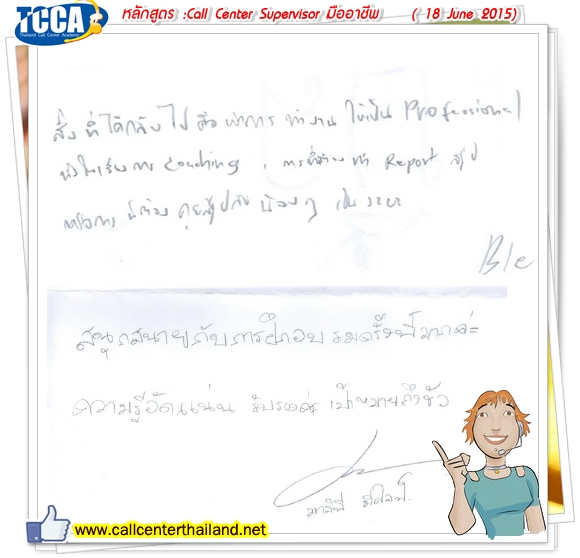 TCCA
Thailand Call Center Academy
หลักสูตร :Call Center Supervisor มืออาชีพ ( 18 June 2015)
สิ่ง ที่ ได้กลับ ไป คือ การ ทำงาน ให้เป็น Professional
ทั้งในเรื่อง การ Coaching , การ ทำ Report สรุป
หรือการ คุยสรุปกับ น้องๆ เป็น
Ble
สนุกสนานกับการฝึกอบรมครั้งนี้มากค่ะ
ความรู้อัดแน่น รับรองค่ะ เป้าหมายถึงชัวร์
www.callcenterthailand.net